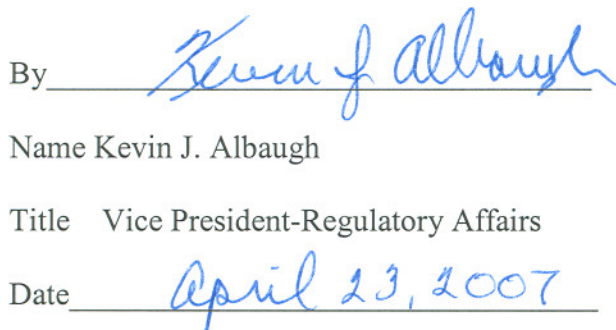 By Kevin J Albaugh
Name Kevin J. Albaugh
Title Vice President-Regulatory Affairs
Date April 23, 2007